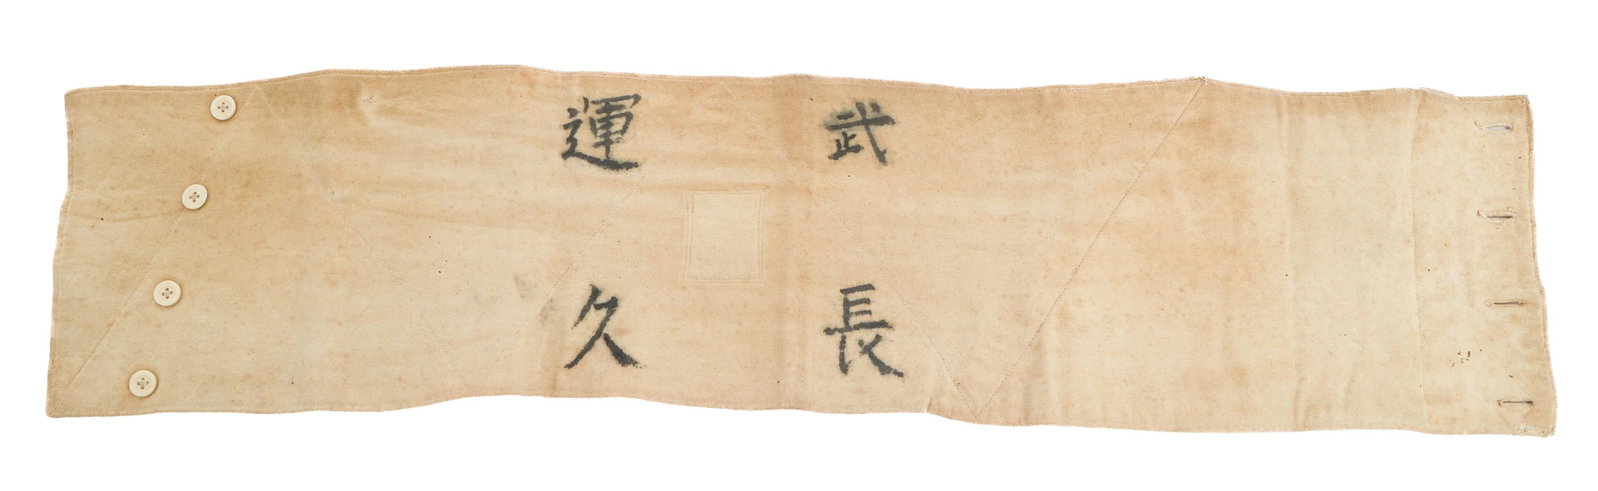 武運
長久